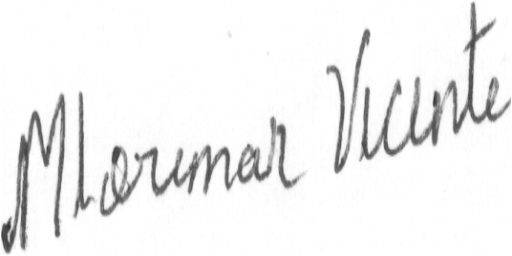 MLorimar Vicente